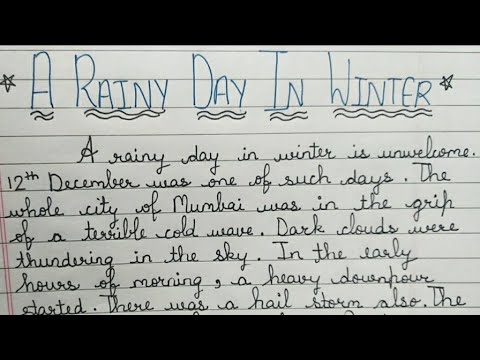 A RAINY DAY IN WINTER
A rainy day in winter is unwelcome.
12th December was one of such days. The
whole city of Mumbai was in the grip
of a terrible cold wave. Dark clouds were
thundering in the sky. In the early
hours of morning, a heavy downpour
started. There was a hail storm also. The